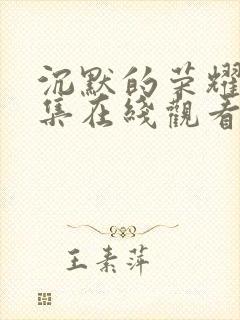 沉默的荣耀
集在綫觀看
王素萍